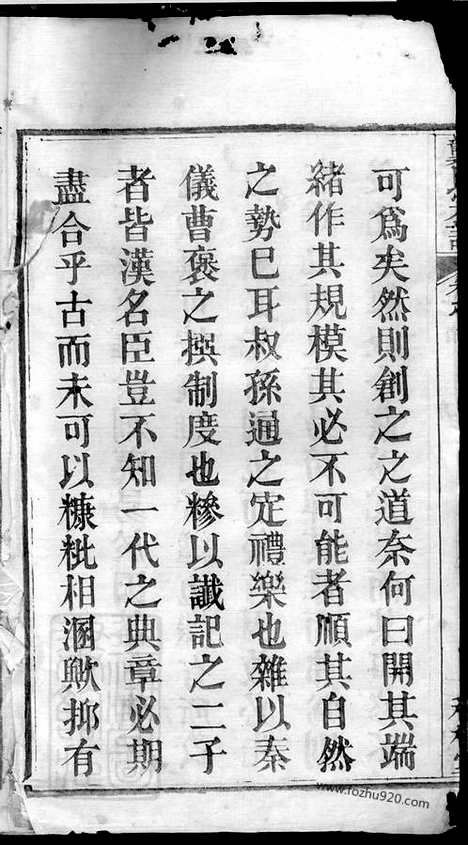 可爲矣然則創之之道奈何曰開其端
緒作其規模其必不可能者順其自然
之勢巳耳叔孫通之定禮樂也雜以秦
儀曹褒之撰制度也糝以讖記之二子
者皆漢名臣豈不知一代之典章必期
盡合乎古而未可以糠粃相溷歟抑有
www.fozhu920.com